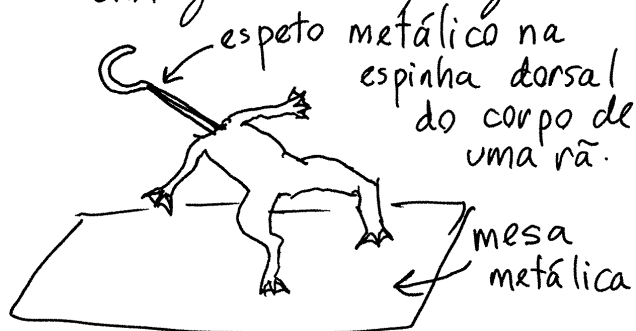 espeto metálico na
espinha dorsal
do corpo de
uma rã.
mesa
metálica